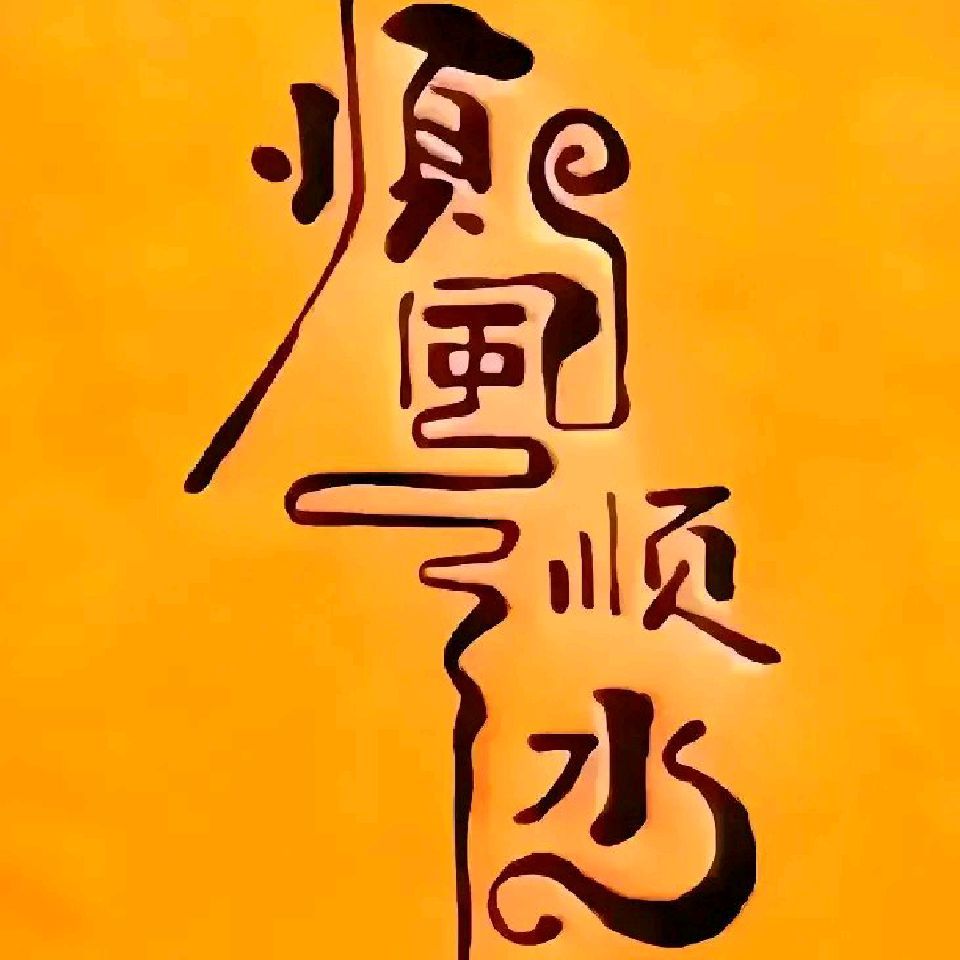 順風
顺水